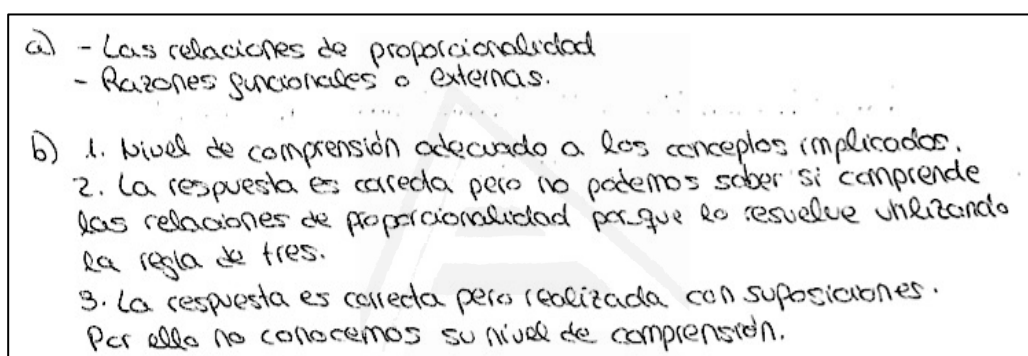 a) - Las relaciones de proporcionalidad
- Razones funcionales o externas.
b) 1. Nivel de comprensión adecuado a los conceptos implicados.
2. La respuesta es correcta pero no podemos saber si comprende
las relaciones de proporcionalidad porque lo resuelve utilizando
la regla de tres.
3. La respuesta es correcta pero realizada con suposiciones.
Por ello no conocemos su nivel de comprensión.